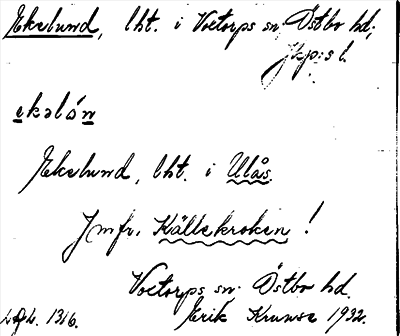 Ekelund, lht. i Voetorps sn. Östbo hd;
Jkp:s l.
ekəlón
Ekelund, lht. i Ulås.
Jmfr. Källekroken !
Voetorps sn. Östbo hd.
1316. Erik Krunse 1932.